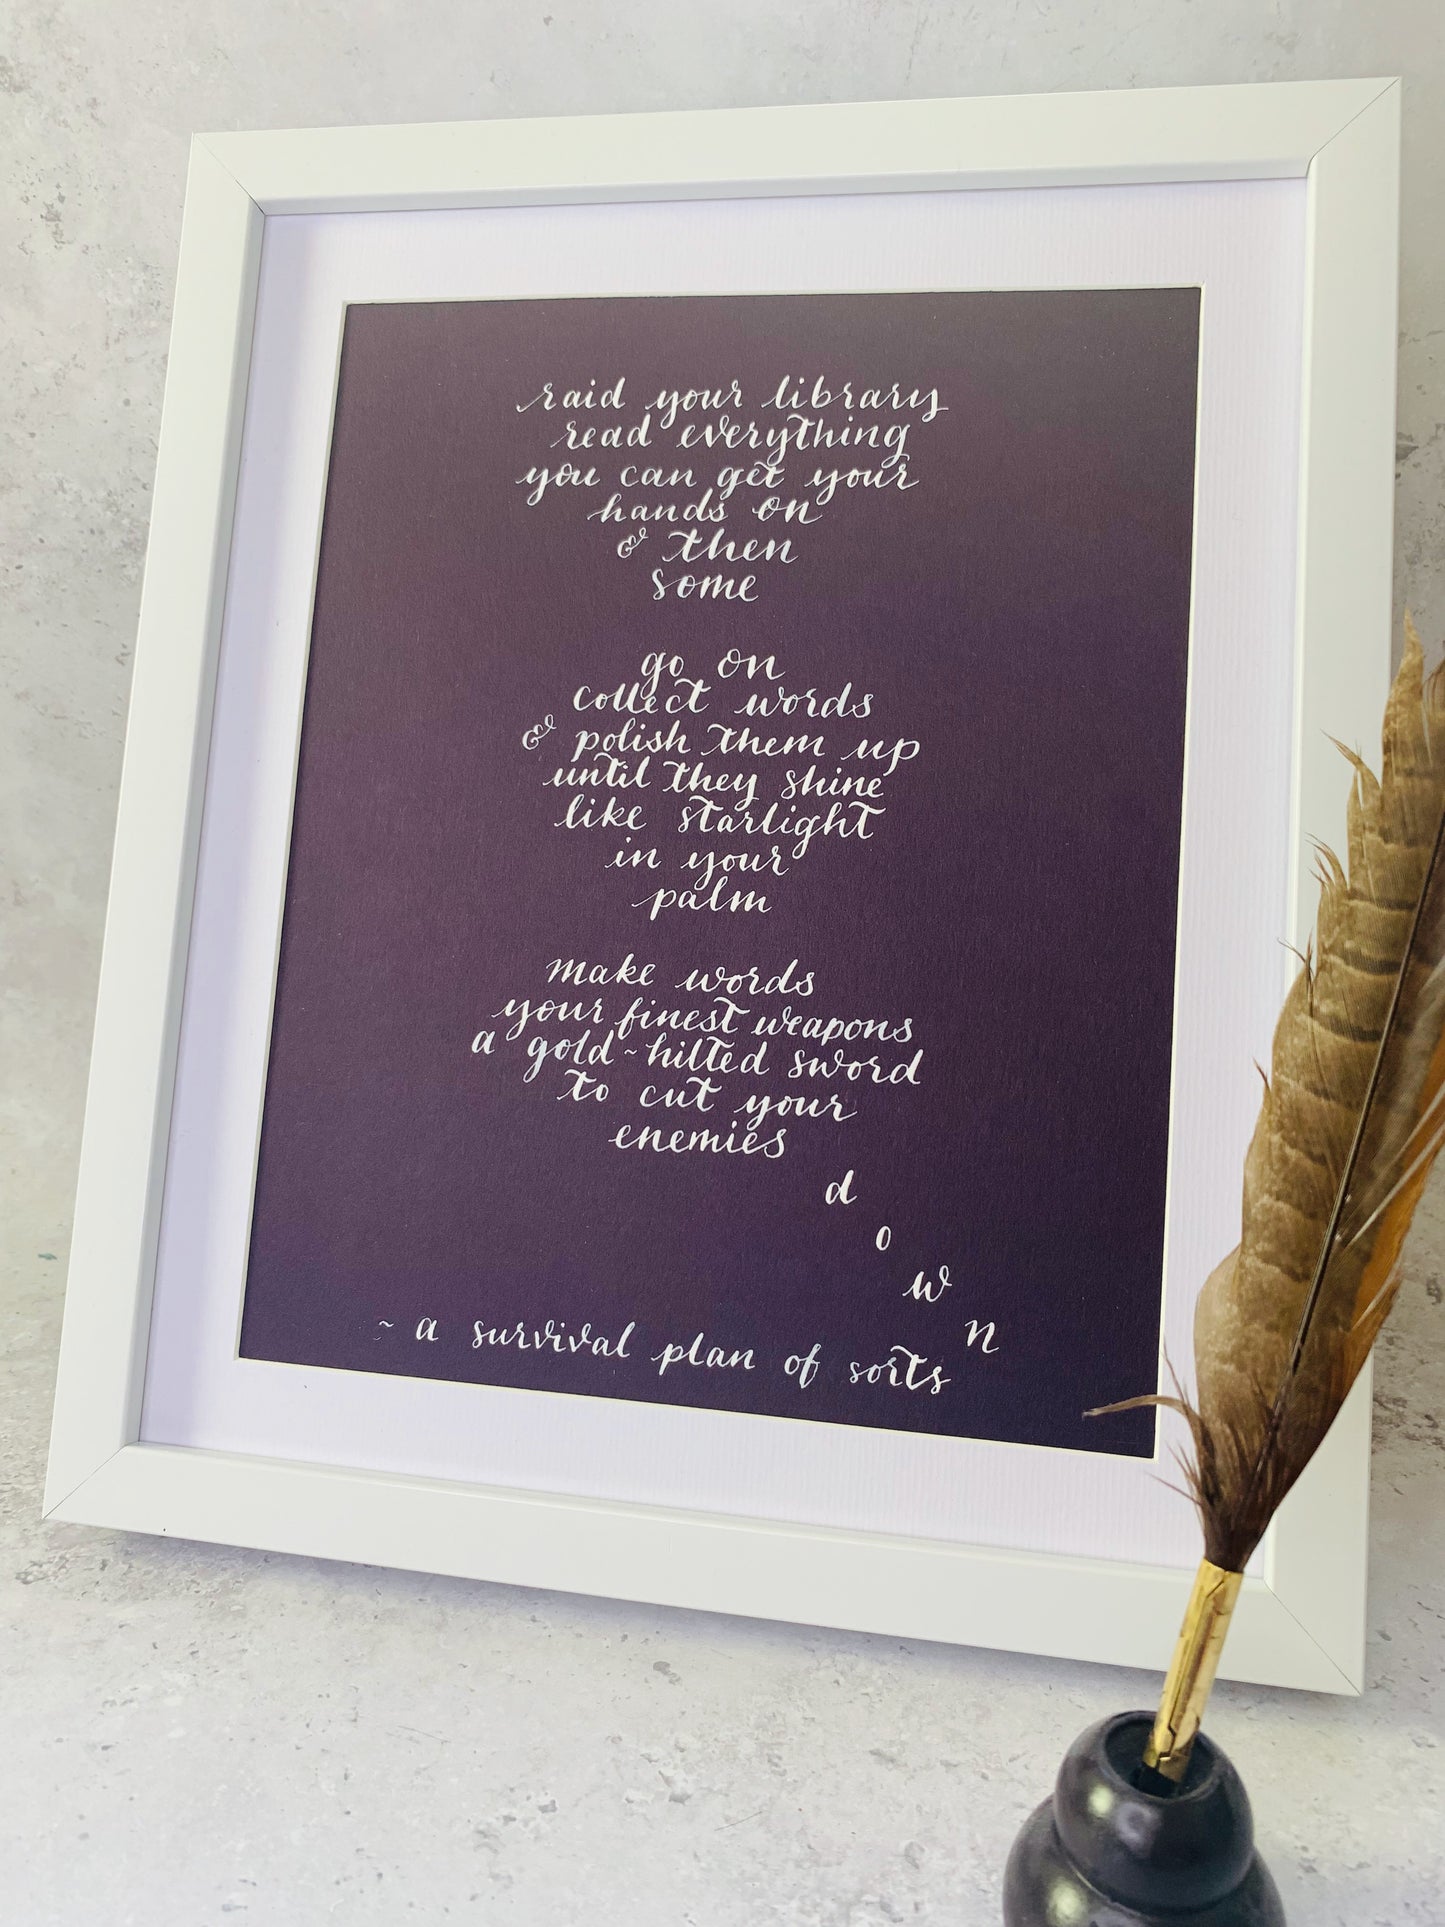 raid your library
read everything
you can get your
hands on
& then
some
go on
collect words
& polish them up
until they shine
like starlight
in your
palm
make words
your finest weapons
a gold-hilted sword
to cut your
enemies
d
o
w
n
~ a survival plan of sorts